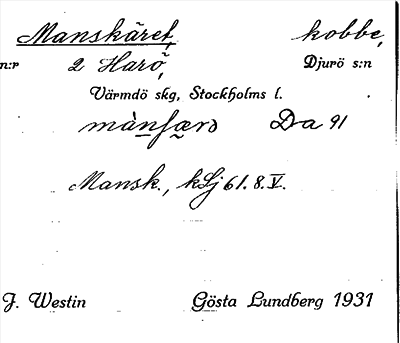 Manskäret, kobbe,
n:r 2 Harö, Djurö s:n
Värmdö skg, Stockholms l.
Da 91
Mansk., kSj 61.8.V.
J. Westin Gösta Lundberg 1931